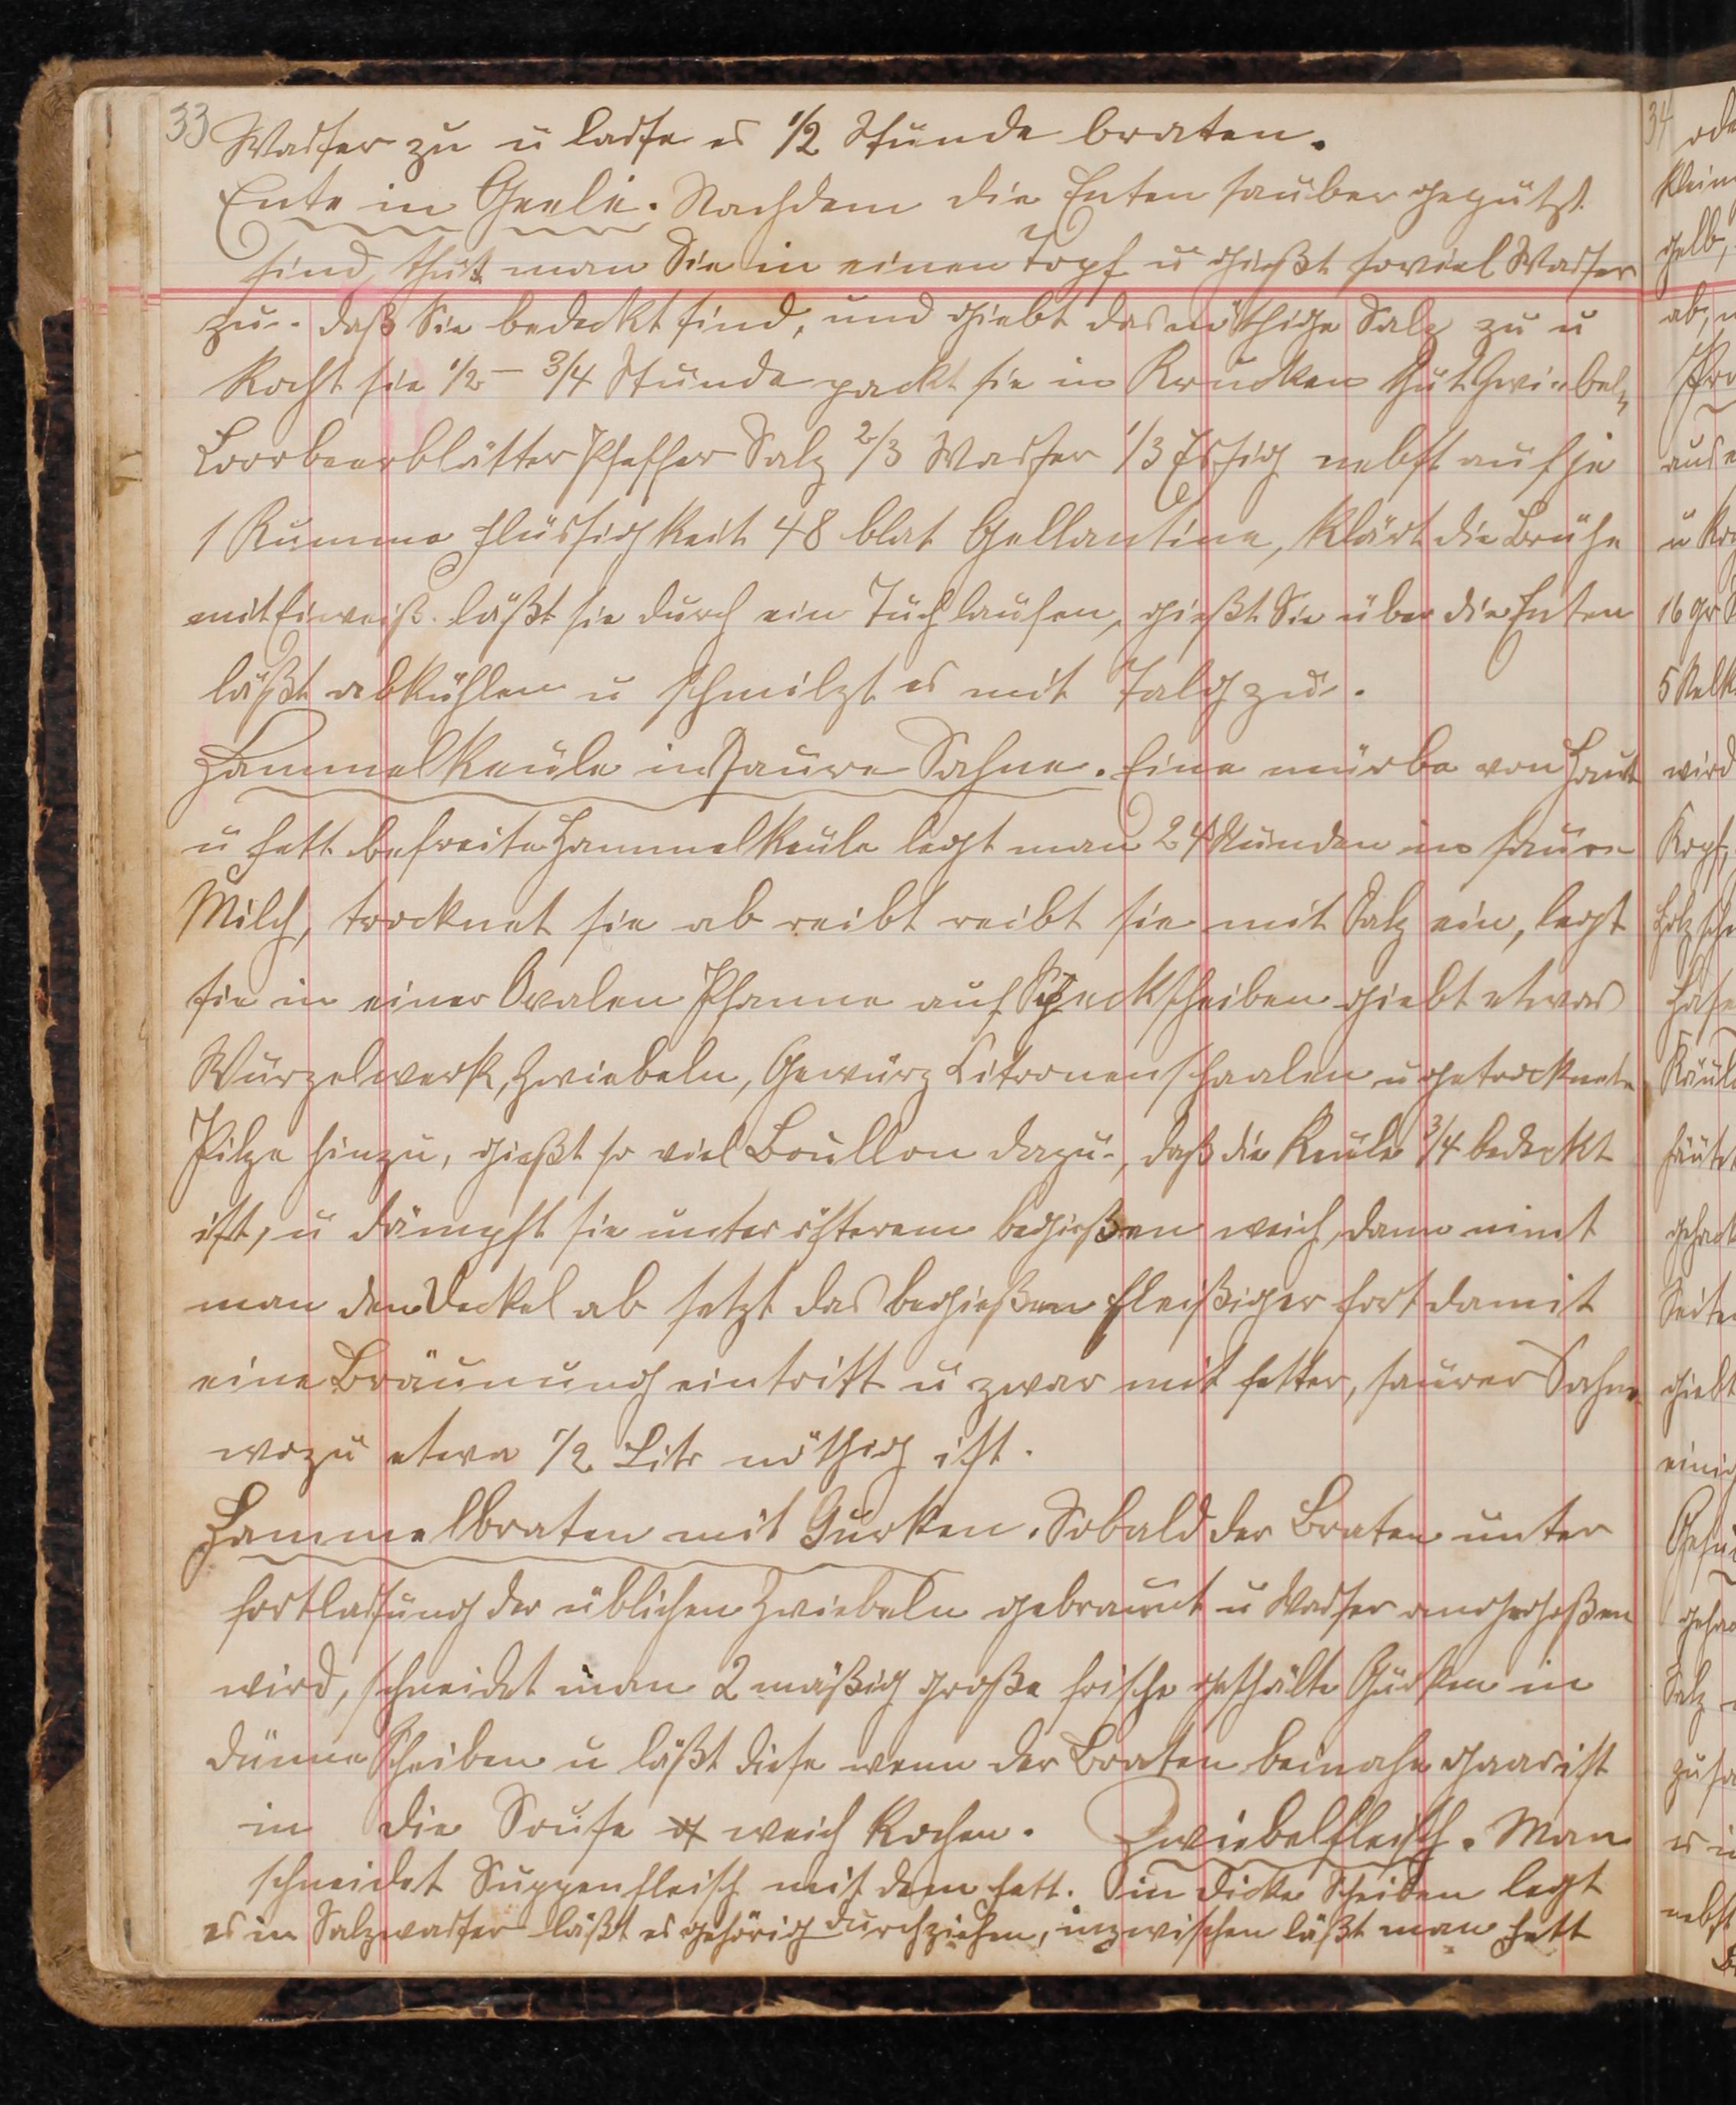 33 Wasser zu u lasse es 1/2 Stunde braten.
Ente in Geele. Nachdem die Enten sauber geputzt
sind, thut man Sie in einen Topf u gießt soviel Wasser
zu. daß Sie bedeckt sind, und giebt das nöthige Salz zu u
kocht sie 1/2 - 3/4 Stunde packt sie in Krucken thut Zwiebel,
Loorbeerblätter Pfeffer Salz 2/3 Wasser 1/3 Essig nebst auf je
1 Kumme Flüssigkeit 48 blat Gellantine, klärt die Brühe
mit Eiweiß. läßt sie durch ein Tuch laufen, gießt Sie über die Enten
läßt abkühlen u schmilzt es mit Talg zu.
Hammelkeule in Saure Sahne. Eine mürbe von Haut
u Fett befreite Hammelkeule legt man 24 Stunden in saure
Milch, trocknet sie ab reibt reibt sie mit Salz ein, legt
sie in einer Ovalen Pfanne auf Speckscheiben giebt etwas
Wurzelwerk, Zwiebeln, Gewürz Citronenschaalen u getrocknete
Pilze hinzu, gießt so viel Boullon dazu, daß die Keule 3/4 bedeckt
ist, u dämpft sie unter öfterem begießen weich, dann nimt
man den Deckel ab setzt das begießen fleißiger fort damit
eine Bräunung eintritt u zwar mit fetter, saurer Sahne
wozu etwa 1/2 Litr nöthig ist.
Hammelbraten mit Gurken. Sobald der Braten unter
fortlassung der üblichen Zwiebeln gebraunt u Wasser
wird, schneidet man 2 mäßig große frische geschälte Gurken in
dünne Scheiben u läßt diese wenn der Braten beinahe gaar ist
in die Souse weich kochen. Zwiebelfleisch. Man
schneidet Suppenfleisch mit dem fett. in dicke Scheiben legt
es in Salzwasser läßt es gehörig durchziehen, inzwischen läßt man Fett